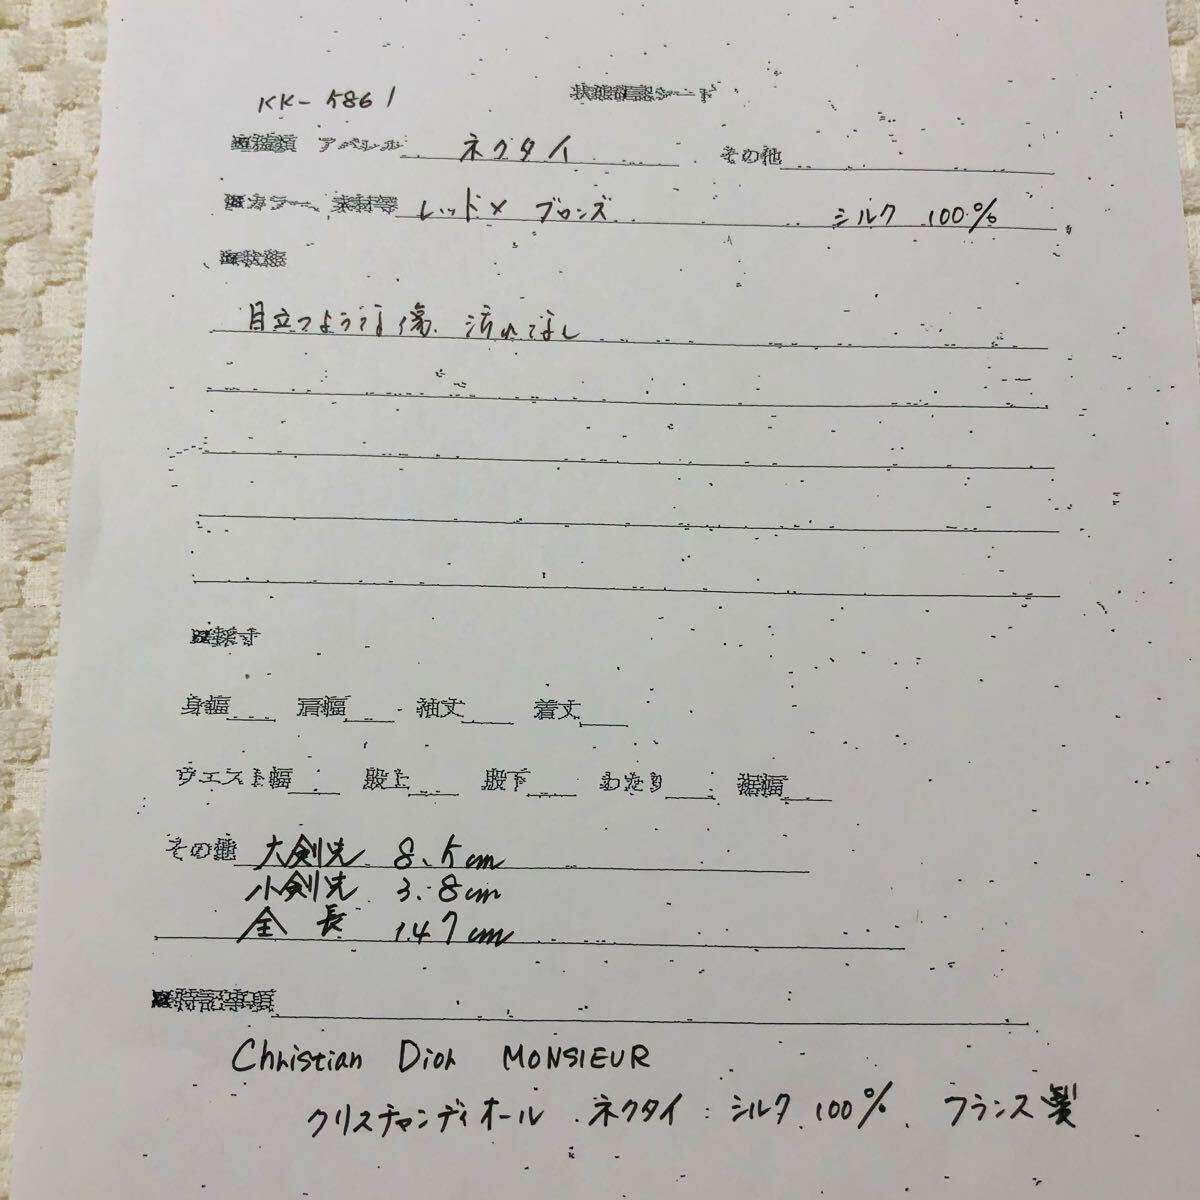 KK-5861
状態確認シート
※種類 アパレル ネクタイ その他
※カラー、素材等 レッド×ブロンズ シルク 100%
※状態
目立つような傷、汚れなし
※採寸
身幅 肩幅 袖丈 着丈
ウエスト幅 股上 股下 わたり 裾幅
その他 大剣先 8.5cm
小剣先 3.8cm
全長 147cm
※特記事項
Christian Dior MONSIEUR
クリスチャンディオール ネクタイ シルク 100% フランス製